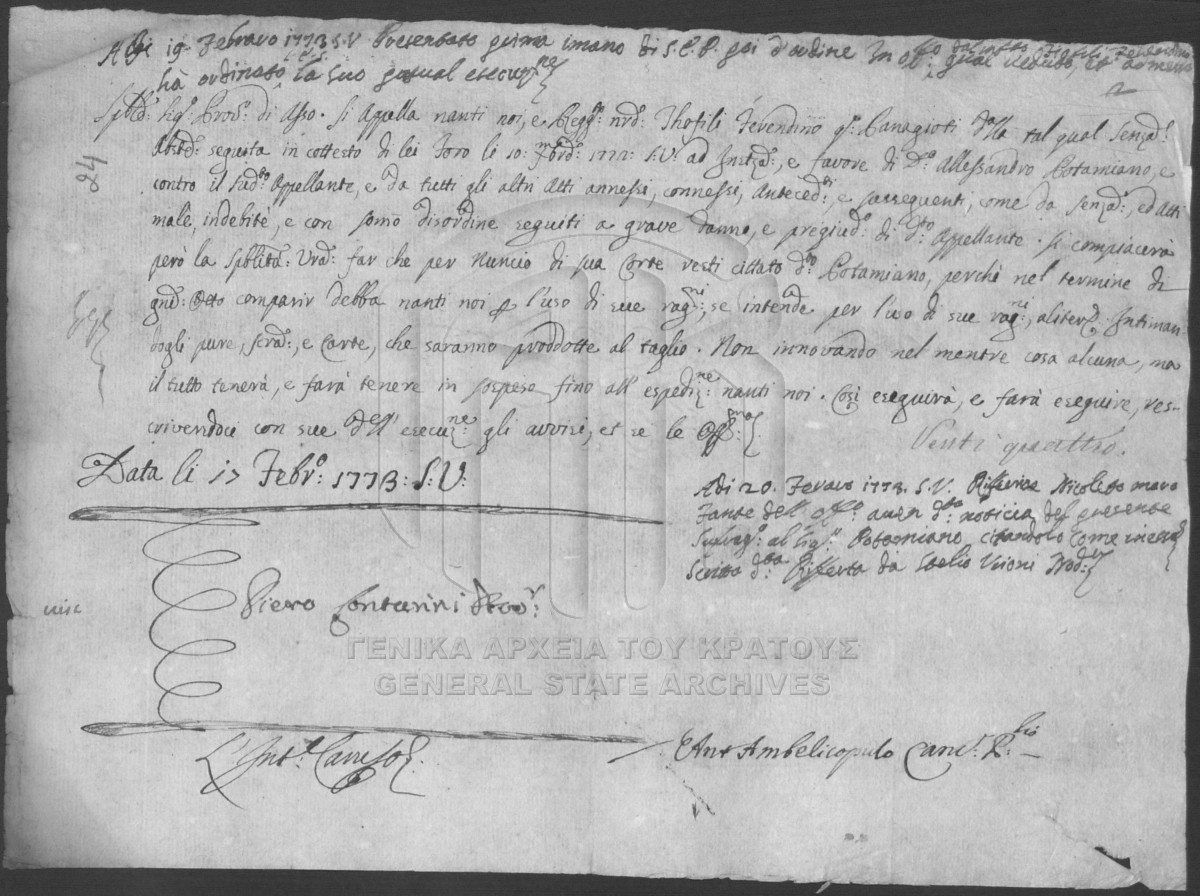 Adi 19. Febraro 1773 S.V. Presentato prima in mano di S.E.P. poi d'ordine In
hà ordinato la suo pontual esecuz:ne
2
24
Sig:r Prov:r di Asso. Si Appella nanti noi, e Thofili Ferendino q:m Panagioti dalla tal qual Senza:
Absd: seguita in cottesto di lei Foro li 10: 1772: S.V: ad Instza:, e favore di D:o Allessandro Potamiano, e
contro il sud:o Appellante, e da tutti gli altri Atti annessi, connessi, Anteced:ti, e susseguenti, come da senza:, ed Atti
male, indebite, e con somo disordine seguiti a grave danno, e pregiud:o di d:to Appellante. Si compiacerà
però la Spblità: Vra: far che per Nuncio di sua Corte resti cittato d:to Potamiano, perchè nel termine di
gni: Otto comparir debba nanti noi p l'uso di sue rag:ni, se intende per l'uso di sue rag:ni, aliter: Intiman
dogli pure, scra:, e Carte, che saranno prodotte al taglio. Non innovando nel mentre cosa alcuna, ma
il tutto tenerà, e farà tenere in sospeso fino all'espediz:ne nanti noi. Così eseguirà, e farà eseguire, res-
crivendoci con sue dell'esecuz:ne gli avvisi, et se le
Venti quattro.
Data li 17 Febr:o 1773: S:V:
Adi 20. Fevraro 1773. S.V. Riferisce Nicoletto
Fante dell' Off:o aver d:to noticia del presente
al Sig:r Potamiano, citandolo come in essa
Scritta d:ta Rifferta da Stelio
Piero Contarini Prov:r
L'Int:e
Ant Ambelicopulo Canc:r
ΓΕΝΙΚΑ ΑΡΧΕΙΑ ΤΟΥ ΚΡΑΤΟΥΣ
GENERAL STATE ARCHIVES